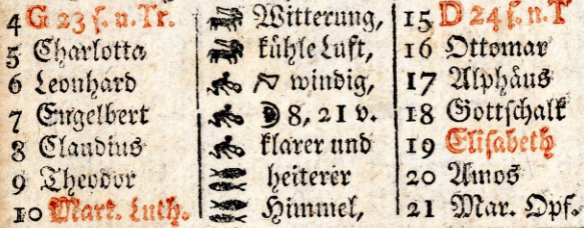 4 G 23 ſ. n. Tr.
5 Charlotta
6 Leonhard
7 Engelbert
8 Claudius
9 Theodor
10 Mart. Luth.
Witterung,
kühle Luft,
windig,
8, 21 v.
klarer und
heiterer
Himmel,
15 D 24 ſ. n. T
16 Ottomar
17 Alphäus
18 Gottſchalk
19 Eliſabeth
20 Amos
21 Mar. Opf.